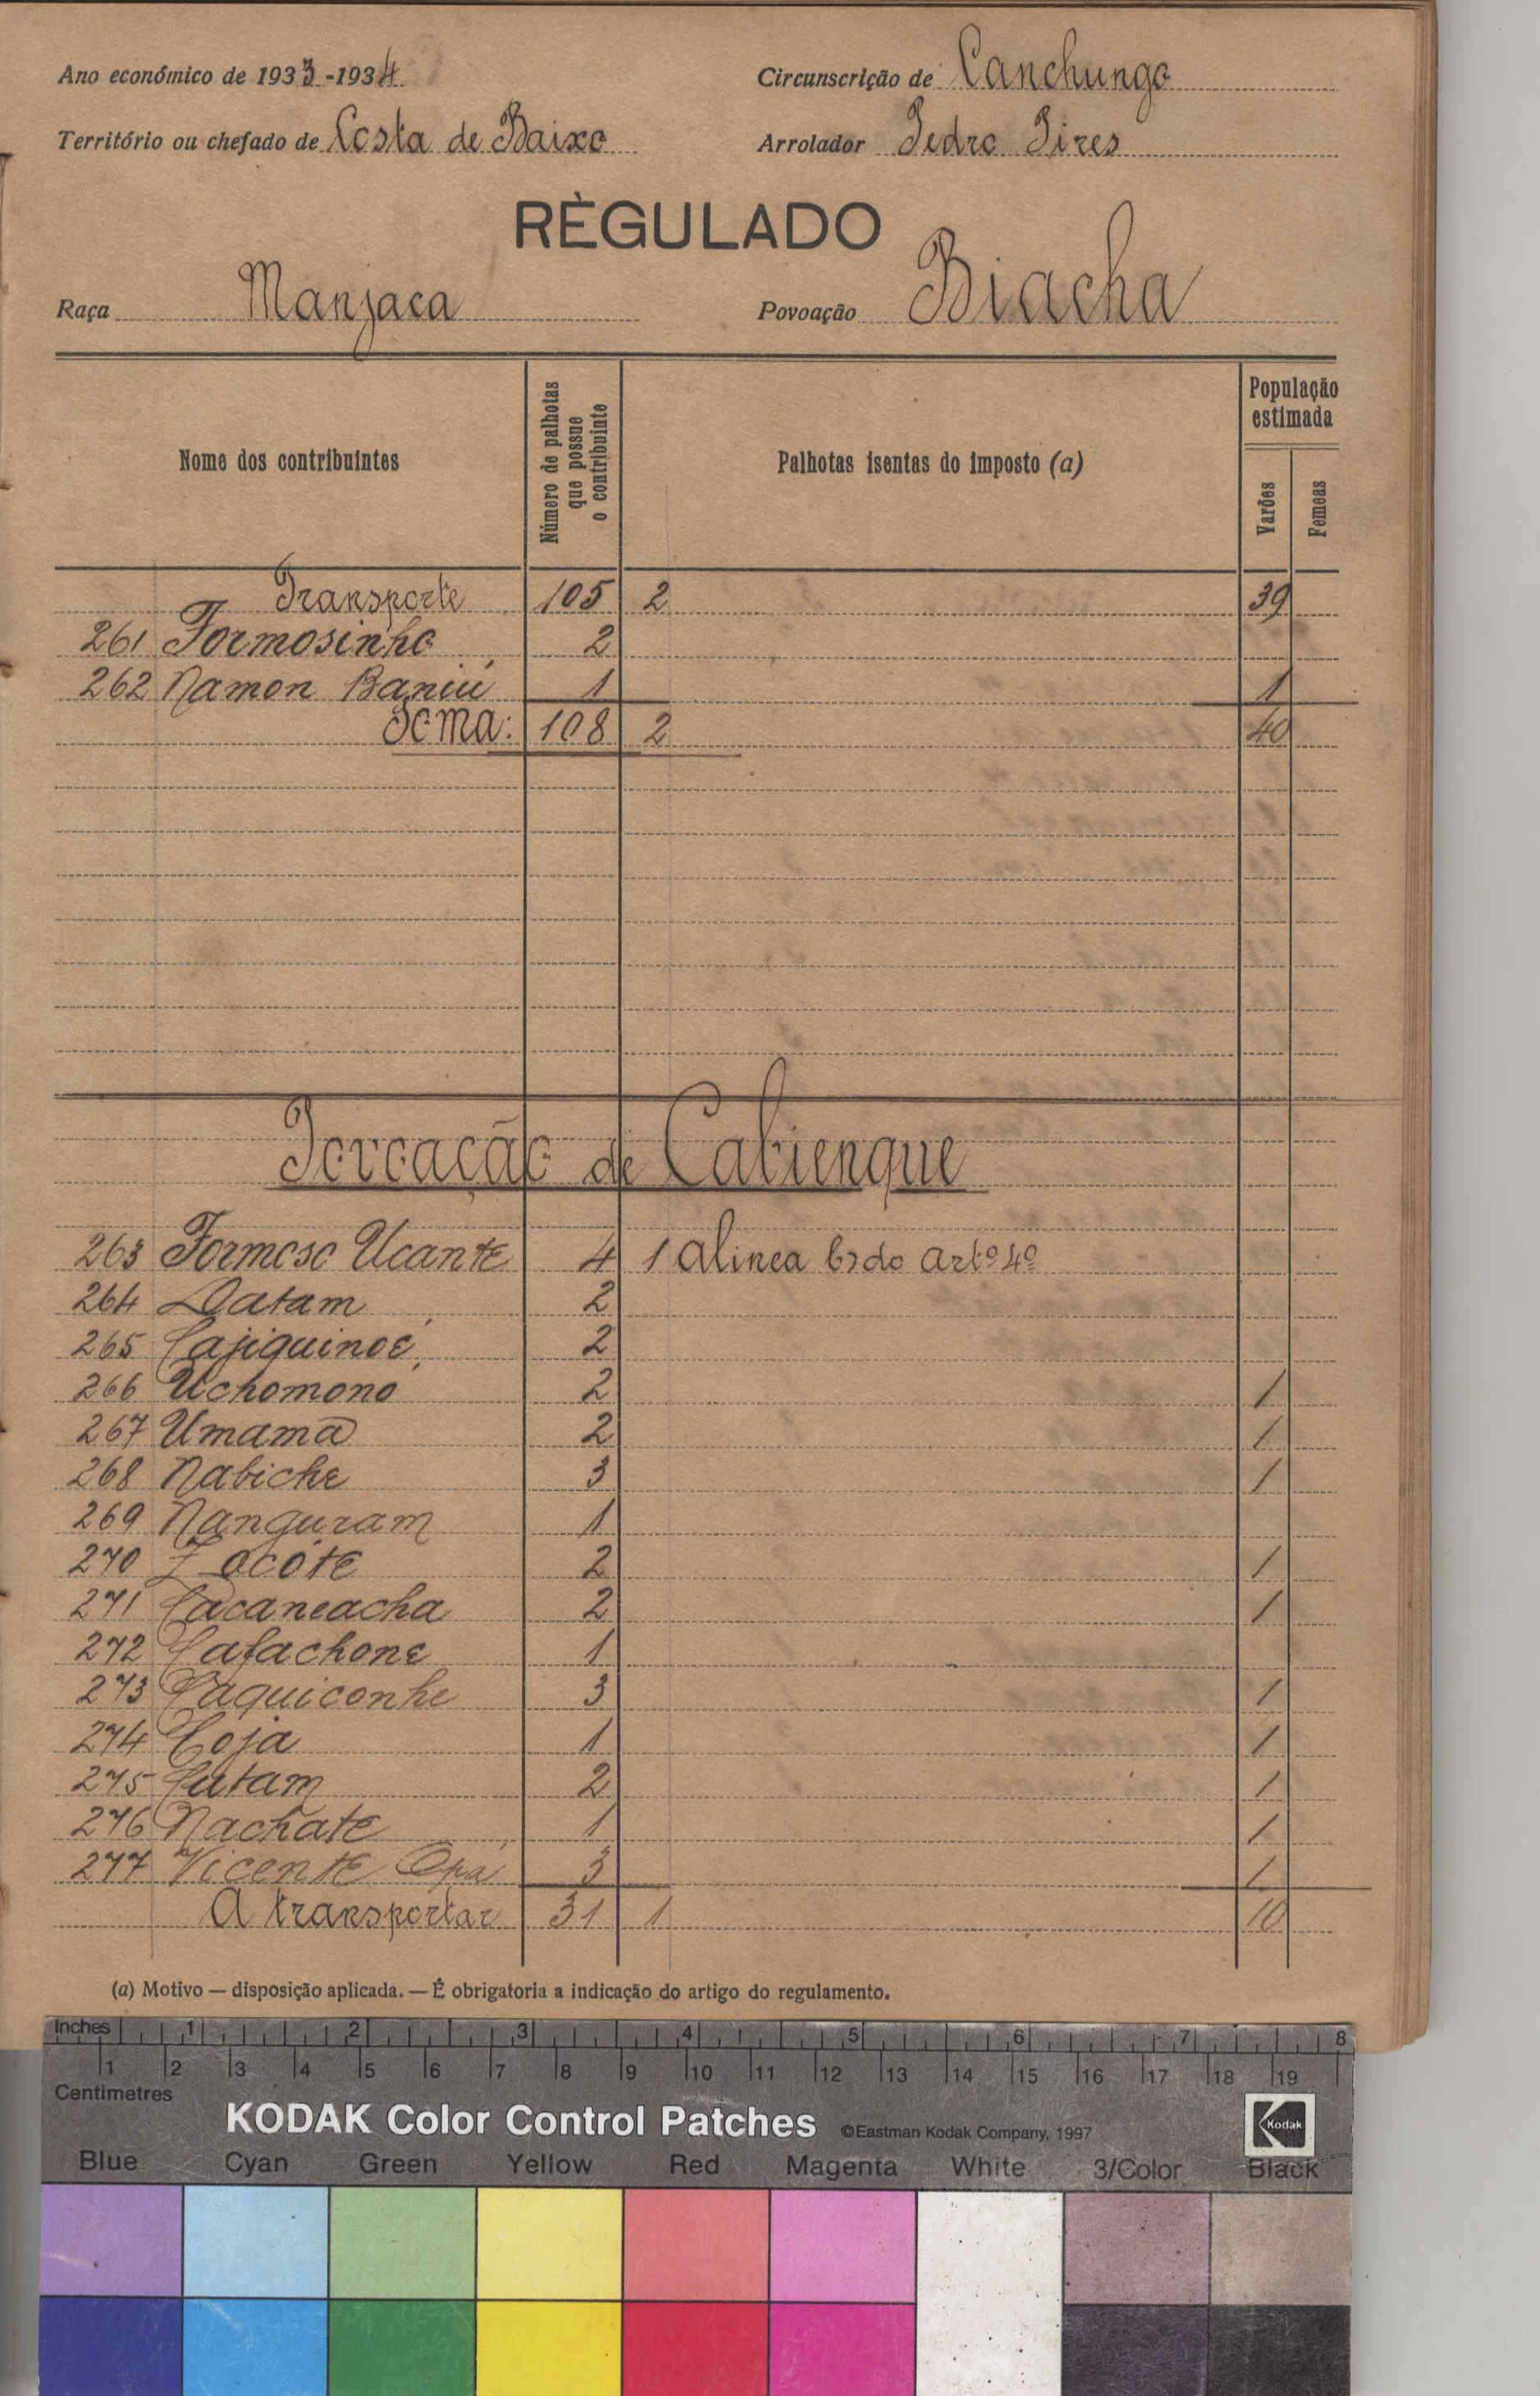 Ano económico de 1933-1934 Circunscrição de Canchungo
Território ou chefado de Costa de Baixo Arrolador Pedro Pires
RÈGULADO
Raça Manjaca Povoação Biacha
Nome dos contribuintes
Número de palhotas
que possue
o contribuinte
Palhotas isentas do imposto (a)
População
estimada
Varões
Femeas
Transporte 105 2 39
261 Formosinho 2
262 Namon Baniú 1 1
Soma: 108 2 40
Povoação de Cabienque
263 Formoso Ucante 4 1 alinea b) do artº 4º
264 Datam 2
265 Cajiquinoé 2
266 Uchomonó 2 1
267 Umamã 2 1
268 Nabiche 3 1
269 Nanguram 1
270 Zocóte 2 1
271 Cacaneacha 2 1
272 Cafachone 1
273 Caquiconhe 3 1
274 Coja 1 1
275 Cutam 2 1
276 Nachate 1 1
277 Vicente Opá 3 1
A transportar 31 1 10
(a) Motivo — disposição aplicada. — É obrigatoria a indicação do artigo do regulamento.
Inches 1 2 3 4 5 6 7 8
1 2 3 4 5 6 7 8 9 10 11 12 13 14 15 16 17 18 19
Centimetres
KODAK Color Control Patches ©Eastman Kodak Company, 1997 Kodak
Blue Cyan Green Yellow Red Magenta White 3/Color Black